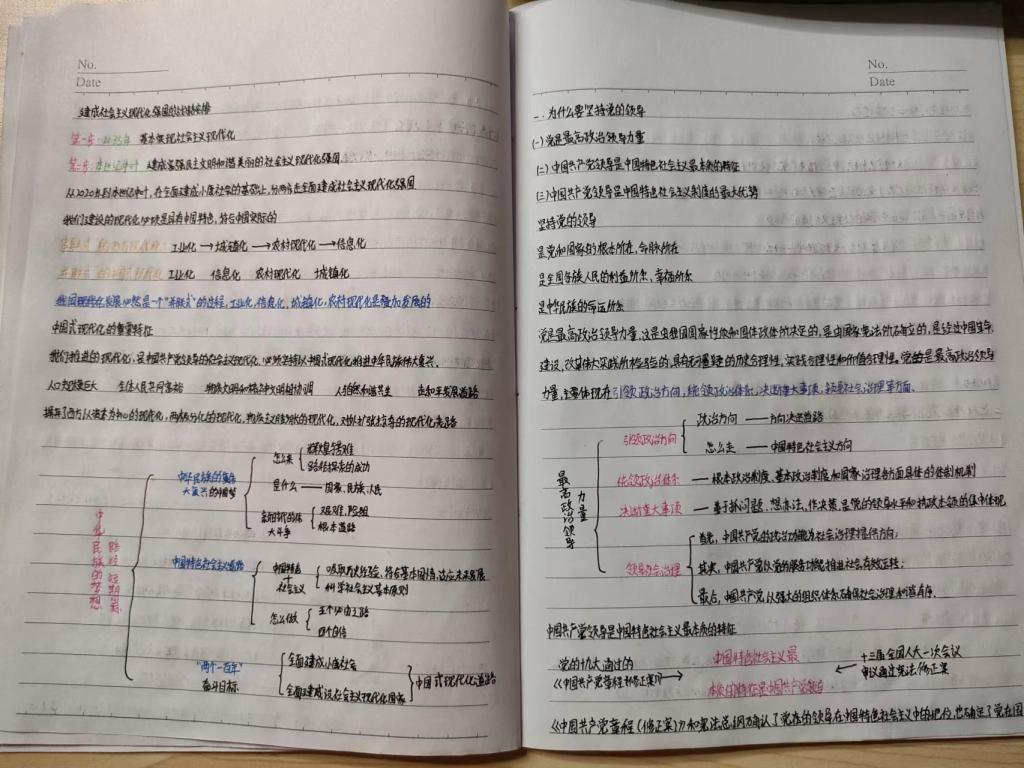 No.
Date
建成社会主义现代化强国的战略安排
第一步：2035年 基本实现社会主义现代化
第二步：本世纪中叶 建成富强民主文明和谐美丽的社会主义现代化强国
从2020年到本世纪中叶，在全面建成小康社会的基础上，分两步走全面建成社会主义现代化强国
我们建设的现代化必须是具有中国特色，符合中国实际的
工业化→城镇化→农村现代化→信息化
工业化 信息化 农村现代化 城镇化
我国现代化发展必然是一个"并联式"的过程，工业化，信息化，城镇化，农村现代化是叠加发展的
中国式现代化的重要特征
我们推进的现代化，是中国共产党领导的社会主义现代化，必须坚持以中国式现代化推进中华民族伟大复兴，
人口规模巨大 全体人民共同富裕 物质文明和精神文明相协调 人与自然和谐共生 走和平发展道路
摒弃了西方以资本为中心的现代化，两极分化的现代化，物质主义膨胀的现代化，对外扩张掠夺的现代化老路
中华民族的伟大复兴的中国梦
怎么来
路径探索的成功
是什么——国家、民族、人民
新时代的伟大斗争
艰难，险阻
根本道路
中国特色社会主义道路
中国特色+社会主义
吸取历史经验，符合基本国情，适合未来发展
科学社会主义基本原则
怎么做
五个必由之路
四个自信
"两个一百年"奋斗目标
全面建成小康社会
全面建成社会主义现代化国家
中国式现代化道路
No.
Date
一、为什么要坚持党的领导
(一)党是最高政治领导力量
(二)中国共产党领导是中国特色社会主义最本质的特征
(三)中国共产党领导是中国特色社会主义制度的最大优势
坚持党的领导
是党和国家的根本所在，命脉所在
是全国各族人民的利益所系，幸福所系
是中华民族的命运所系
党是最高政治领导力量，这是由我国国家性质和国体政体所决定的，是由国家宪法所确立的，是经过中国革命，
建设，改革伟大实践所检验的，具有无可置疑的历史合理性，实践合理性和价值合理性。党的是最高政治领导
力量，主要体现在引领政治方向，统领政治体系，决断重大事项，领导社会治理等方面。
最高政治领导力量
引领政治方向
政治方向——方向决定道路
怎么走——中国特色社会主义方向
统领政治体系——根本政治制度、基本政治制度和国家治理各方面具体的体制机制
决断重大事项——善于抓问题，想办法，作决策，是党的领导水平和执政本领的集中体现
领导社会治理
首先，中国共产党的政治功能为社会治理提供方向；
其次，中国共产党以党的服务功能推进社会有效运转；
最后，中国共产党，以强大的组织体系确保社会治理和谐有序。
中国共产党领导是中国特色社会主义最本质的特征
党的十九大通过的《中国共产党章程（修正案）》→
中国特色社会主义最
本质的特征是中国共产党领导
←十三届全国人大一次会议审议通过宪法修正案
《中国共产党章程（修正案）》和宪法总纲确认了党的领导在中国特色社会主义中的地位，也确定了党在国